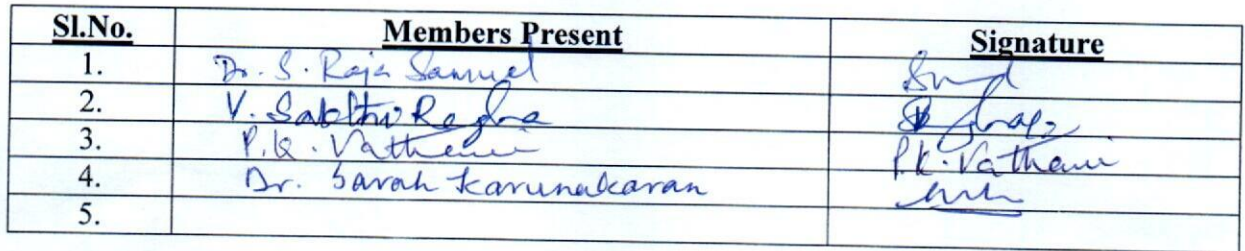 Sl.No. Members Present Signature
1. Dr. S. Raja Samuel
2. V. Sakthi Regha
3. P.K. Vathani P.K. Vathani
4. Dr. Sarah Karunakaran
5.